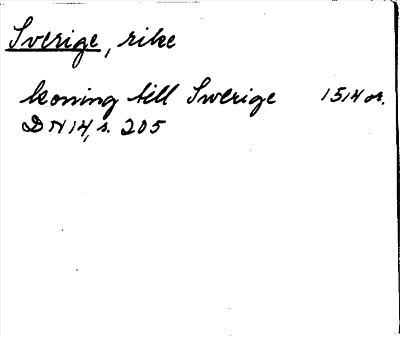 Sverige, rike
koning till Swerige 1514 or.
DN 14, s. 205